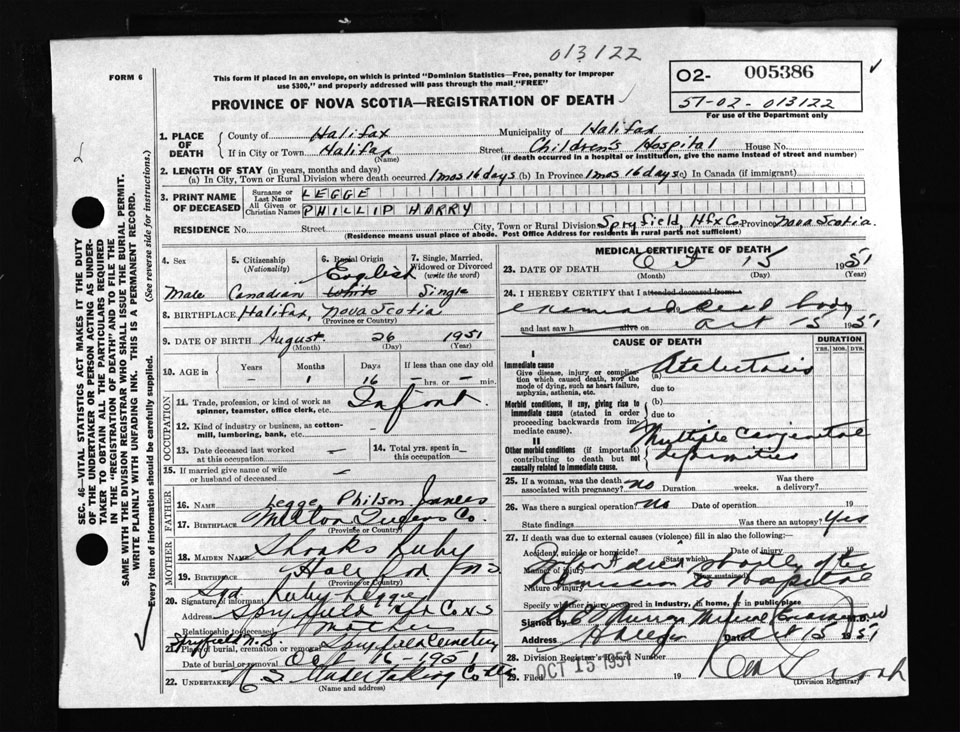 013122
FORM 6
This form if placed in an envelope, on which is printed "Dominion Statistics—Free, penalty for improper
use $300," and properly addressed will pass through the mail "FREE"
PROVINCE OF NOVA SCOTIA—REGISTRATION OF DEATH
02- 005386
51-02-013122
For use of the Department only
SEC. 46—VITAL STATISTICS ACT MAKES IT THE DUTY
OF THE UNDERTAKER OR PERSON ACTING AS UNDER-
TAKER TO OBTAIN ALL THE PARTICULARS REQUIRED
IN THE "REGISTRATION OF DEATH" AND TO FILE THE
SAME WITH THE DIVISION REGISTRAR WHO SHALL ISSUE THE BURIAL PERMIT.
WRITE PLAINLY WITH UNFADING INK. THIS IS A PERMANENT RECORD.
Every item of information should be carefully supplied. (See reverse side for instructions.)
1. PLACE OF DEATH
County of Halifax Municipality of Halifax
If in City or Town Halifax Street Children's Hospital House No.
(Name) (If death occurred in a hospital or institution, give the name instead of street and number)
2. LENGTH OF STAY (in years, months and days)
(a) In City, Town or Rural Division where death occurred 1 mos 16 days (b) In Province 1 mos 16 days (c) In Canada (if immigrant)
3. PRINT NAME OF DECEASED
Surname or Last Name LEGGE
All Given or Christian Names PHILLIP HARRY
RESIDENCE No. Street City, Town or Rural Division Spryfield, Hfx Co Province Nova Scotia.
(Residence means usual place of abode. Post Office Address for residents in rural parts not sufficient)
4. Sex Male
5. Citizenship (Nationality) Canadian
6. Racial Origin English White
7. Single, Married, Widowed or Divorced (write the word) Single
8. BIRTHPLACE Halifax, Nova Scotia
(Province or Country)
9. DATE OF BIRTH August 26 1951
(Month) (Day) (Year)
10. AGE in Years — Months 1 Days 16 If less than one day old — hrs. or — min.
OCCUPATION
11. Trade, profession, or kind of work as spinner, teamster, office clerk, etc. Infant.
12. Kind of industry or business, as cotton-mill, lumbering, bank, etc. —
13. Date deceased last worked at this occupation —
14. Total yrs. spent in this occupation —
15. If married give name of wife or husband of deceased —
FATHER
16. Name Legge Philson James
17. Birthplace Milton Queens Co.
(Province or Country)
MOTHER
18. Maiden Name Shonks Ruby
19. Birthplace N.S.
(Province or Country)
20. Signature of informant Sgd. Ruby Legge
Address Spryfield Hfx Co N.S
Relationship to deceased Mother
Spryfield N.S.
21. Place of burial, cremation or removal Spryfield Cemetery
Date of burial or removal Oct 16-1951
22. UNDERTAKER N S Undertaking Co
(Name and address)
MEDICAL CERTIFICATE OF DEATH
23. DATE OF DEATH Oct 15 1951
(Month) (Day) (Year)
24. I HEREBY CERTIFY that I attended deceased from
examined dead body
and last saw h alive on Oct 15 1951
CAUSE OF DEATH
DURATION
YRS. MOS. DYS.
I
Immediate cause
Give disease, injury or complication which caused death, NOT the mode of dying, such as heart failure, asphyxia, asthenia, etc.
(a) Atelectasis
due to
Morbid conditions, if any, giving rise to immediate cause (stated in order proceeding backwards from immediate cause).
(b)
due to
(c)
II
Other morbid conditions (if important) contributing to death but not causally related to immediate cause.
Multiple Congenital
deformities
25. If a woman, was the death associated with pregnancy? no Duration weeks. Was there a delivery?
26. Was there a surgical operation? No Date of operation 19
State findings Was there an autopsy? Yes
27. If death was due to external causes (violence) fill in also the following:
Accident, suicide or homicide? (State which) Date of injury
Manner of injury (How sustained)
Nature of injury
died shortly after
admission to hospital
Specify whether injury occurred in industry, in home, or in public place
Signed by Medical Examiner M.D.
Address Halifax Date Oct 15 1951
28. Division Registrar's Record Number
29. Filed OCT 15 1951 19
(Division Registrar)